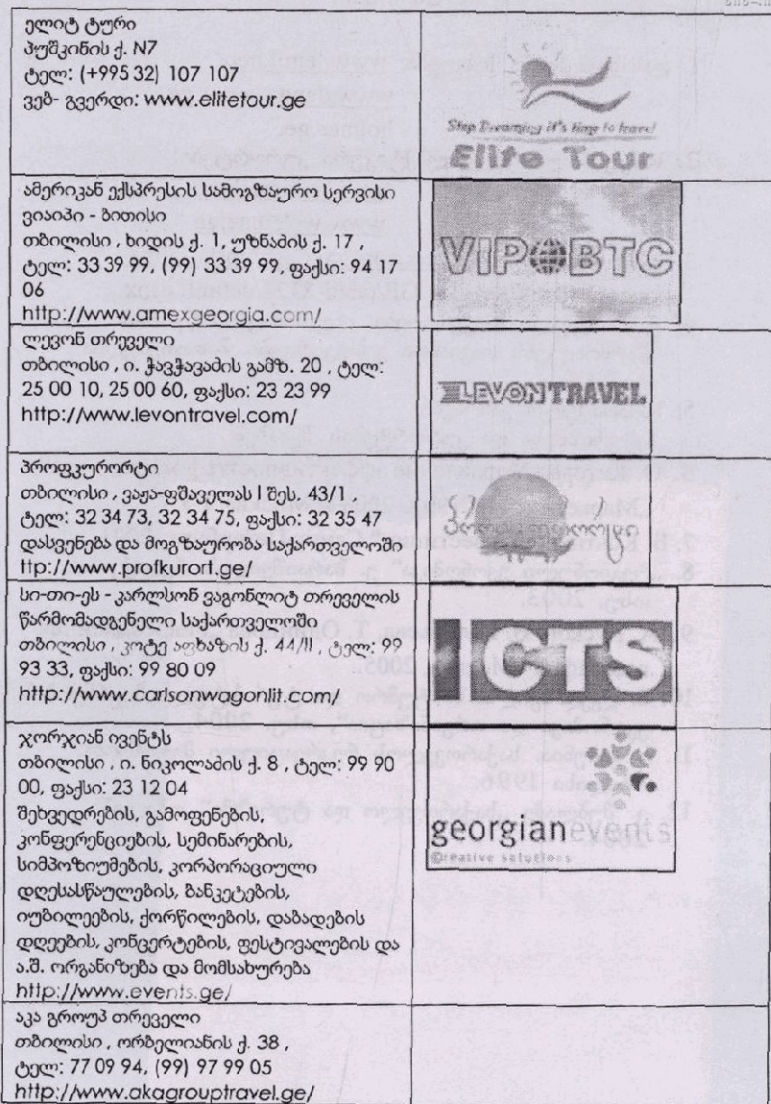 ელიტ ტური
პუშკინის ქ. N7
ტელ: (+995 32) 107 107
ვებ- გვერდი: www.elitetour.ge
Stop Dreaming it's time to travel
Elite Tour
ამერიკან ექსპრესის სამოგზაურო სერვისი
ვიაიპი - ბითისი
თბილისი , ხიდის ქ. 1, უზნაძის ქ. 17 ,
ტელ: 33 39 99, (99) 33 39 99, ფაქსი: 94 17
06
http://www.amexgeorgia.com/
VIP BTC
ლევონ თრეველი
თბილისი , ი. ჭავჭავაძის გამზ. 20 , ტელ:
25 00 10, 25 00 60, ფაქსი: 23 23 99
http://www.levontravel.com/
LEVON TRAVEL
პროფკურორტი
თბილისი , ვაჟა-ფშაველას I შეს. 43/1 ,
ტელ: 32 34 73, 32 34 75, ფაქსი: 32 35 47
დასვენება და მოგზაურობა საქართველოში
ttp://www.profkurort.ge/
პროფკურორტი
სი-თი-ეს - კარლსონ ვაგონლიტ თრეველის
წარმომადგენელი საქართველოში
თბილისი , კოტე აფხაზის ქ. 44/II , ტელ: 99
93 33, ფაქსი: 99 80 09
http://www.carlsonwagonlit.com/
ICTS
ჯორჯიან ივენტს
თბილისი , ი. ნიკოლაძის ქ. 8 , ტელ: 99 90
00, ფაქსი: 23 12 04
შეხვედრების, გამოფენების,
კონფერენციების, სემინარების,
სიმპოზიუმების, კორპორაციული
დღესასწაულების, ბანკეტების,
იუბილეების, ქორწილების, დაბადების
დღეების, კონცერტების, ფესტივალების და
ა.შ. ორგანიზება და მომსახურება
http://www.events.ge/
georgianevents
Creative solutions
აკა გროუპ თრეველი
თბილისი , ორბელიანის ქ. 38 ,
ტელ: 77 09 94, (99) 97 99 05
http://www.akagrouptravel.ge/